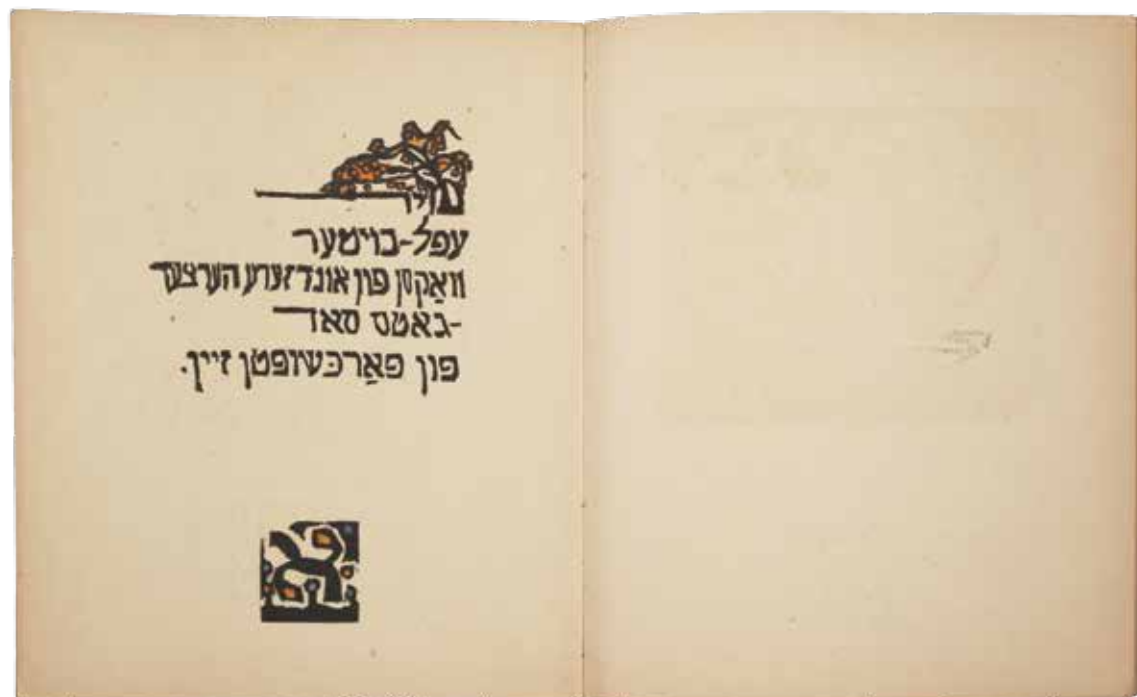 עפל-בוימער
וואַקסן פון אונדזערע הערצער
-גאטס סאד
פון פאַרכּשופטן זיין.